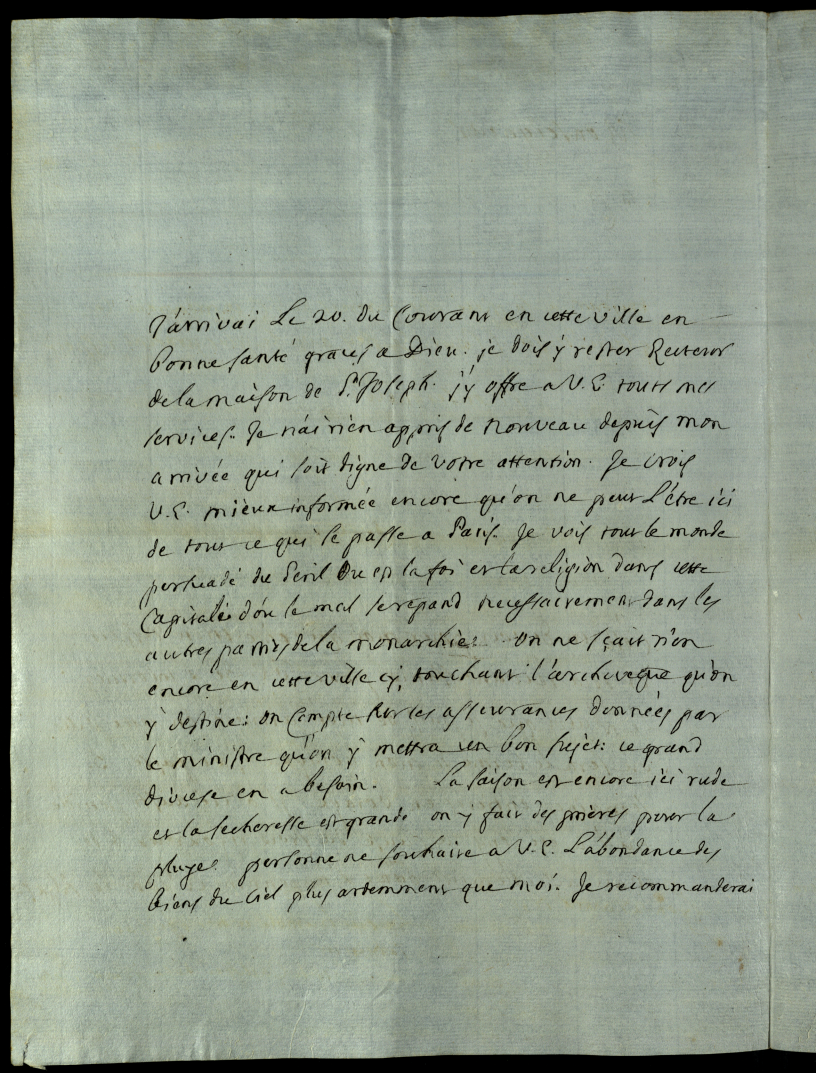 J'arrivai Le 20. du Courant en cette ville en
bonne santé graces a Dieu. je dois y rester Recteur
de la maison de St. Joseph. j'y offre a V.E. touts mes
services. Je n'ai rien appris de nouveau depuis mon
arrivée qui soit digne de votre attention. Je crois
V.E. mieux informée encore qu'on ne peut L'être ici
de tout ce qui se passe a Paris. Je vois tout le monde
persuadé du Peril Ou est la foi et la religion dans cette
Capitale d'ou le mal se repand necessairement dans les
autres parties de la monarchie. on ne sçait rien
encore en cette ville cy, touchant l'archeveque qu'on
y destine: on Compte sur les asseurances données par
le ministre qu'on y mettra un bon sujet: ce grand
diocese en a besoin. La saison est encore ici rude
et la secheresse est grande on y fait des prieres pour la
pluye. personne ne souhaite a V.E. L'abondance des
biens du Ciel plus ardemment que moi. Je recommanderai